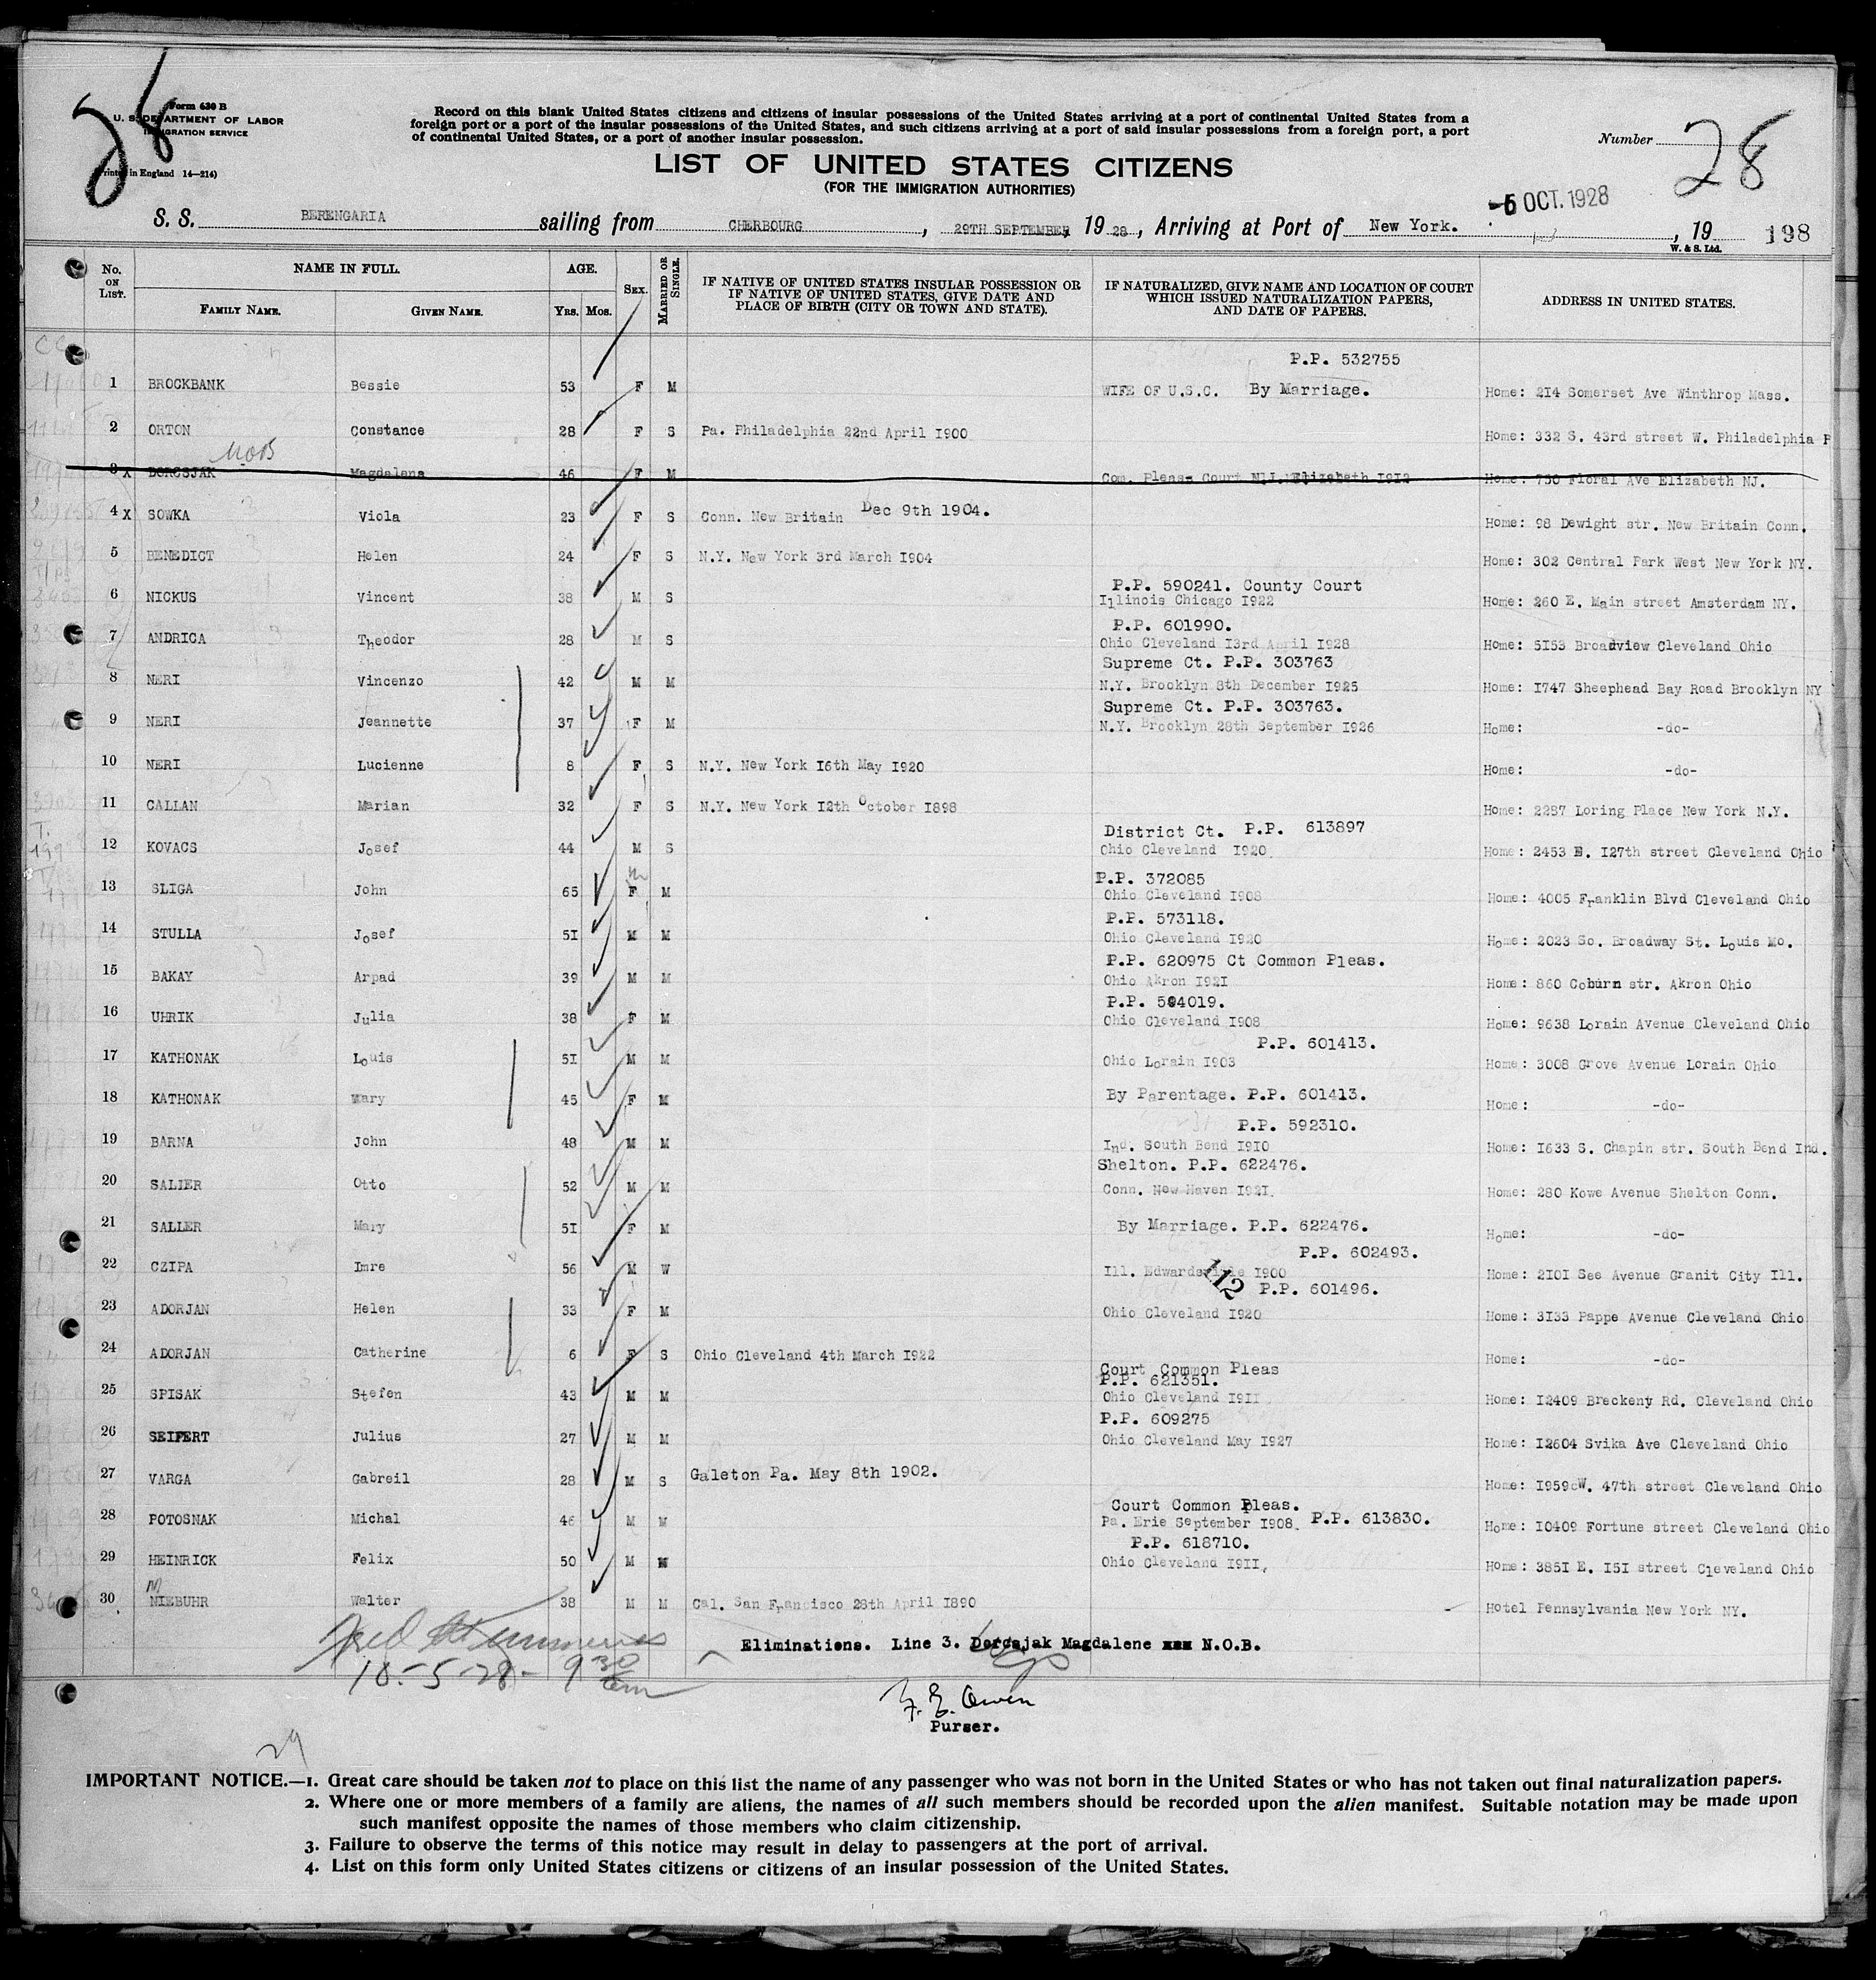 28
Form 630 B
U. S. DEPARTMENT OF LABOR
IMMIGRATION SERVICE
Printed in England 14—214)
Record on this blank United States citizens and citizens of insular possessions of the United States arriving at a port of continental United States from a
foreign port or a port of the insular possessions of the United States, and such citizens arriving at a port of said insular possessions from a foreign port, a port
of continental United States, or a port of another insular possession.
Number 28
LIST OF UNITED STATES CITIZENS
(FOR THE IMMIGRATION AUTHORITIES)
S. S. BERENGARIA sailing from CHERBOURG, 29TH SEPTEMBER, 1928, Arriving at Port of New York. -5 OCT. 1928, 19 198
W. & S. Ltd.
No. ON LIST. NAME IN FULL. FAMILY NAME. GIVEN NAME. AGE. YRS. MOS. SEX. MARRIED OR SINGLE. IF NATIVE OF UNITED STATES INSULAR POSSESSION OR IF NATIVE OF UNITED STATES, GIVE DATE AND PLACE OF BIRTH (CITY OR TOWN AND STATE). IF NATURALIZED, GIVE NAME AND LOCATION OF COURT WHICH ISSUED NATURALIZATION PAPERS, AND DATE OF PAPERS. ADDRESS IN UNITED STATES.
P.P. 532755
1 BROCKBANK Bessie 53 F M WIFE OF U.S.C. By Marriage. Home: 214 Somerset Ave Winthrop Mass.
2 ORTON Constance 28 F S Pa. Philadelphia 22nd April I900 Home: 332 S. 43rd street W. Philadelphia P
NOB
3 x DORCSJAK Magdalena 46 F M Com. Pleas Court N.J. Elizabeth I9I2 Home: 730 Floral Ave Elizabeth NJ.
4 x SOWKA Viola 23 F S Conn. New Britain Dec 9th 1904. Home: 98 Dewight str. New Britain Conn.
5 BENEDICT Helen 24 F S N.Y. New York 3rd March I904 Home: 302 Central Park West New York NY.
P.P. 590241. County Court
6 NICKUS Vincent 38 M S Illinois Chicago I922 Home: 260 E. Main street Amsterdam NY.
P.P. 601990.
7 ANDRICA Theodor 28 M S Ohio Cleveland I3rd April I928 Home: 5I53 Broadview Cleveland Ohio
Supreme Ct. P.P. 303763
8 NERI Vincenzo 42 M M N.Y. Brooklyn 8th December I925 Home: I747 Sheephead Bay Road Brooklyn NY
Supreme Ct. P.P. 303763.
9 NERI Jeannette 37 F M N.Y. Brooklyn 28th September I926 Home: -do-
10 NERI Lucienne 8 F S N.Y. New York I6th May I920 Home: -do-
11 CALLAN Marian 32 F S N.Y. New York I2th October I898 Home: 2287 Loring Place New York N.Y.
District Ct. P.P. 613897
12 KOVACS Josef 44 M S Ohio Cleveland I920. Home: 2453 E. I27th street Cleveland Ohio
P.P. 372085
13 SLIGA John 65 m F M Ohio Cleveland I908 Home: 4005 Franklin Blvd Cleveland Ohio
P.P. 573118.
14 STULLA Josef 5I M M Ohio Cleveland I920 Home: 2023 So. Broadway St. Louis Mo.
P.P. 620975 Ct Common Pleas.
15 BAKAY Arpad 39 M M Ohio Akron I92I Home: 860 Coburn str. Akron Ohio
P.P. 594019.
16 UHRIK Julia 38 F M Ohio Cleveland I908 Home: 9638 Lorain Avenue Cleveland Ohio
P.P. 601413.
17 KATHONAK Louis 5I M M Ohio Lorain I903 Home: 3008 Grove Avenue Lorain Ohio
18 KATHONAK Mary 45 F M By Parentage. P.P. 601413. Home: -do-
P.P. 592310.
19 BARNA John 48 M M Ind. South Bend I9I0 Home: I633 S. Chapin str. South Bend Ind.
Shelton. P.P. 622476.
20 SALIER Otto 52 M M Conn. New Haven I92I. Home: 280 Kowe Avenue Shelton Conn.
21 SALLER Mary 5I F M By Marriage. P.P. 622476. Home: -do-
P.P. 602493.
22 CZIPA Imre 56 M W Ill. Edwardsville I900 Home: 2I0I See Avenue Granit City Ill.
112 P.P. 601496.
23 ADORJAN Helen 33 F M Ohio Cleveland I920 Home: 3I33 Pappe Avenue Cleveland Ohio
24 ADORJAN Catherine 6 F S Ohio Cleveland 4th March I922 Home: -do-
Court Common Pleas
P.P. 621351.
25 SPISAK Stefen 43 M M Ohio Cleveland I9II Home: I2409 Breckeny Rd. Cleveland Ohio
P.P. 609275
26 SEIFERT Julius 27 M M Ohio Cleveland May I927 Home: I2604 Svika Ave Cleveland Ohio
27 VARGA Gabreil 28 M S Galeton Pa. May 8th 1902. Home: I959cW. 47th street Cleveland Ohio
Court Common Pleas.
28 POTOSNAK Michal 46 M M Pa. Erie September I908. P.P. 613830. Home: I0409 Fortune street Cleveland Ohio
P.P. 618710.
29 HEINRICK Felix 50 M M Ohio Cleveland I9II. Home: 385I E. I5I street Cleveland Ohio
30 NIEBUHR Walter 38 M M Cal. San Francisco 28th April I890 Hotel Pennsylvania New York NY.
Eliminations. Line 3. Dorcsjak Magdalene xxx N.O.B.
10-5-28- 9 30 am
F. E. Owen
Purser.
29
IMPORTANT NOTICE.—1. Great care should be taken not to place on this list the name of any passenger who was not born in the United States or who has not taken out final naturalization papers.
2. Where one or more members of a family are aliens, the names of all such members should be recorded upon the alien manifest. Suitable notation may be made upon
such manifest opposite the names of those members who claim citizenship.
3. Failure to observe the terms of this notice may result in delay to passengers at the port of arrival.
4. List on this form only United States citizens or citizens of an insular possession of the United States.